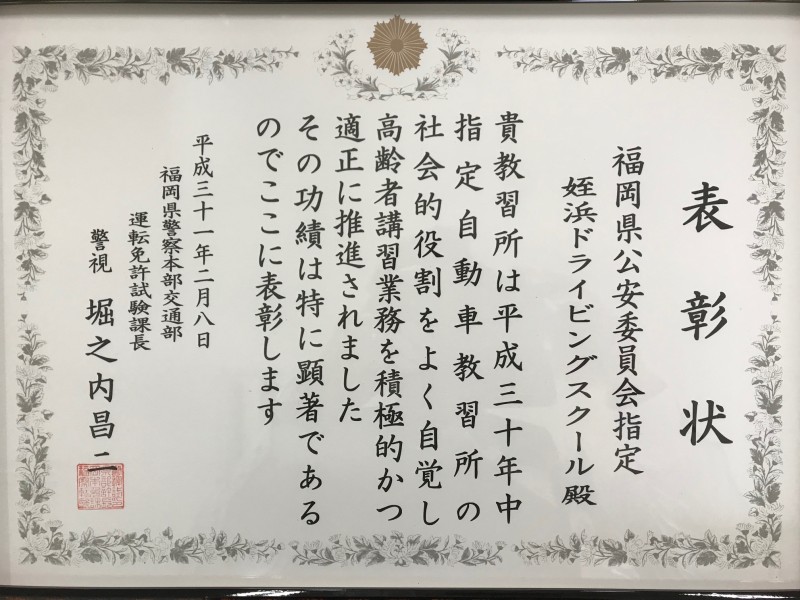 表彰状
福岡県公安委員会指定
姪浜ドライビングスクール殿
貴教習所は平成三十年中
指定自動車教習所の
社会的役割をよく自覚し
高齢者講習業務を積極的かつ
適正に推進されました
その功績は特に顕著である
のでここに表彰します
平成三十一年二月八日
福岡県警察本部交通部
運転免許試験課長
警視 堀之内昌二